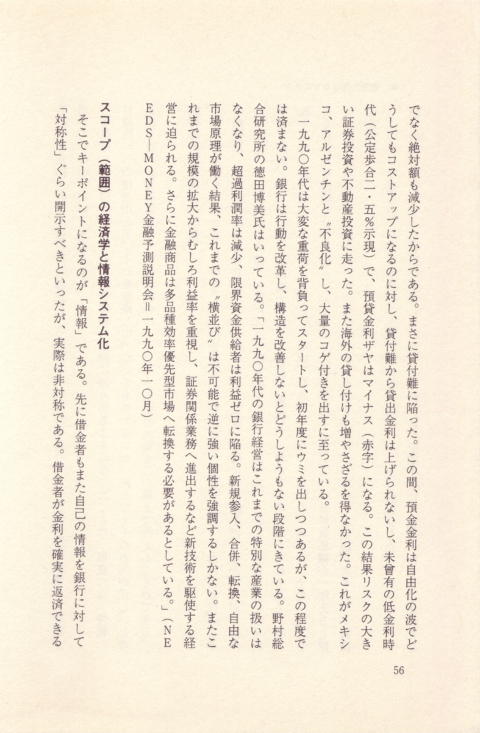 でなく絶対額も減少したからである。まさに貸付難に陥った。この間、預金金利は自由化の波でど
うしてもコストアップになるのに対し、貸付難から貸出金利は上げられないし、未曾有の低金利時
代（公定歩合二・五％示現）で、預貸金利ザヤはマイナス（赤字）になる。この結果リスクの大き
い証券投資や不動産投資に走った。また海外の貸し付けも増やさざるを得なかった。これがメキシ
コ、アルゼンチンと〝不良化〟し、大量のコゲ付きを出すに至っている。
一九九〇年代は大変な重荷を背負ってスタートし、初年度にウミを出しつつあるが、この程度で
は済まない。銀行は行動を改革し、構造を改善しないとどうしようもない段階にきている。野村総
合研究所の徳田博美氏はいっている。「一九九〇年代の銀行経営はこれまでの特別な産業の扱いは
なくなり、超過利潤率は減少、限界資金供給者は利益ゼロに陥る。新規参入、合併、転換、自由な
市場原理が働く結果、これまでの〝横並び〟は不可能で逆に強い個性を強調するしかない。またこ
れまでの規模の拡大からむしろ利益率を重視し、証券関係業務へ進出するなど新技術を駆使する経
営に迫られる。さらに金融商品は多品種効率優先型市場へ転換する必要があるとしている。」（ＮＥ
ＥＤＳ―ＭＯＮＥＹ金融予測説明会＝一九九〇年一〇月）
スコープ（範囲）の経済学と情報システム化
そこでキーポイントになるのが「情報」である。先に借金者もまた自己の情報を銀行に対して
「対称性」ぐらい開示すべきといったが、実際は非対称である。借金者が金利を確実に返済できる
56